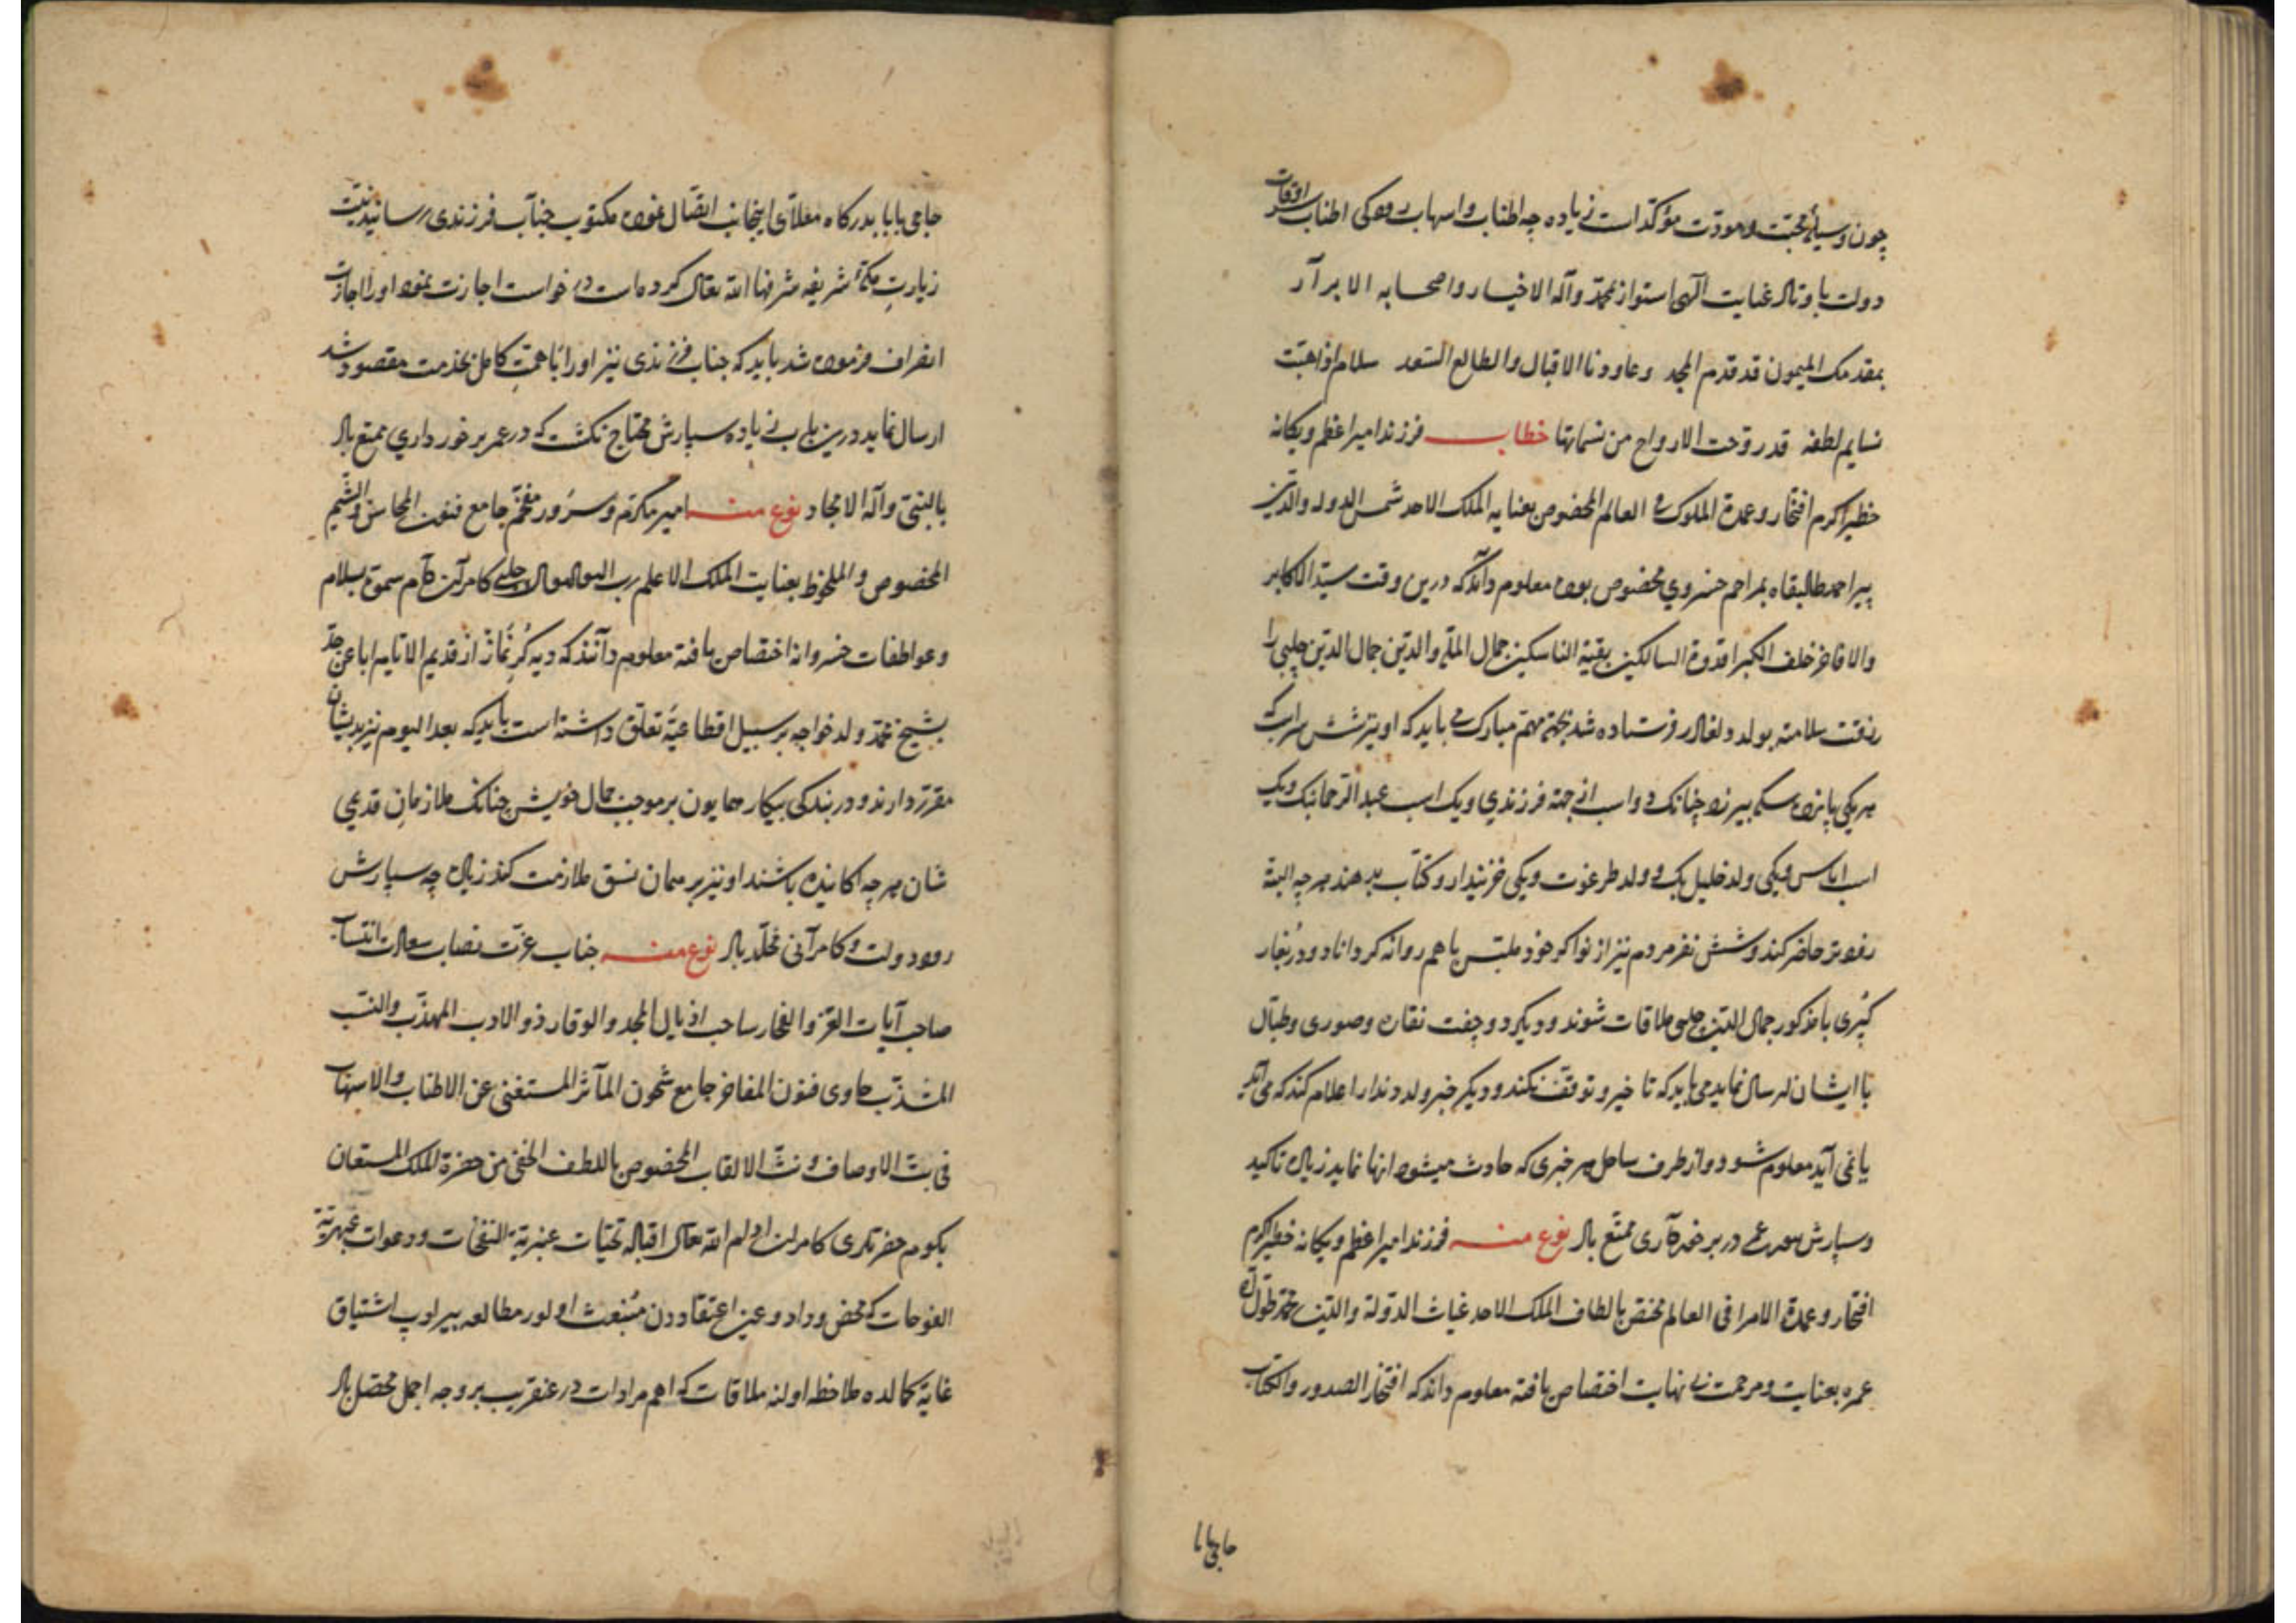 چون وسیلهٔ محبت و مودت مؤکد است زیاده چه اطناب و اسهاب رود کی اطناب سرادقات
دولت با وتاد عنایت الهی استوار بمحمد وآله الاخیار واصحابه الابرار
بمقدمک المیمون قد قدم المجد وعاودنا الاقبال والطالع السعد سلام
نسایم لطفه قد روحت الارواح من نسماتها خطاب فرزند امیر اعظم ویکانه
خطیر اکرم افتخار وعمدة الملوک فی العالم المخصوص بعنایة الملک الاحد شمس الدوله والدین
پیر احمد طالبقاه بمراحم خسروی مخصوص بوده معلوم داند که درین وقت سید الاکابر
والافاخر خلف الکبرا قدوة السالکین بقیة الناسکین جمال الملة والدین جمال الدین چلبی را
فرستاده شد بجهة مهم مبارک می باید که او نیز شش سر اسب که
هر یکی پانزده سکه بیرزد چنانک دو اسب از جهة فرزندی ویک اسب عبد الرحمن بک ویک
اسب ایاس ویکی ولد خلیل بک و ولد طرغوت ویکی خزینه دار وکتاب بدهند هر چه البته
زودتر حاضر کند وشش نفر مردم نیز از نوکر خود ملبس با هم روانه کرداناد ودر
کبری با مذکور جمال الدین چلبی ملاقات شوند ودیکر دو جفت نقاره وصوری وطبال
با ایشان ارسال نماید می باید که تاخیر وتوقف نکند ودیکر خبر ولد دندار اعلام کند که می آید
یا نمی آید معلوم شود واز طرف ساحل هر خبری که حادث میشود انها نماید زیاده تاکید
وسپارش در برخورداری ممتع باد نوع منه فرزند امیر اعظم ویکانه خطیر اکرم
افتخار وعمدة الامرا فی العالم مختص بالطاف الملک الاحد غیاث الدولة والدین محمد طول الله
عمره بعنایت ومرحمت بی نهایت اختصاص یافته معلوم داند که افتخار الصدور والکتاب
حاجی بابا
حاجی بابا بدرکاه معلای اینجانب اتصال نموده مکتوب جناب فرزندی رسانید نیت
زیارت مکهٔ شریفه شرفها الله تعالی کرده است در خواست اجازت نمود او را اجازت
انصراف فرموده شد باید که جناب فرزندی نیز او را با همت کامل بخدمت مقصود شد
ارسال نماید درین باب زیاده سپارش محتاج نکشت که در عمر برخورداری ممتع باد
بالنبی وآله الامجاد نوع منه امیر مکرم وسرور مفخم جامع فنون المحاسن والشیم
المخصوص والملحوظ بعنایت الملک الاعلم چلبی کامران کام سموع بسلام
وعواطفات خسروانه اختصاص یافته معلوم دانند که دیه کرنماز از قدیم الایام ابا عن جد
بشیخ محمد ولد خواجه بر سبیل اقطاعیة تعلق داشته است باید که بعد الیوم نیز بدیشان
مقرر دارند ودر بندکی بیکار همایون بر موجب حال خویش چنانک ملازمان قدیمی
شان هر چه باشند او نیز بر همان نسق ملازمت کند زیاده چه سپارش
رود دولت وکامرانی مخلد باد نوع منه جناب عزت نصاب سعادت انتساب
صاحب آیات العز والفخار ساحب اذیال المجد والوقار ذو الادب المهذب والنسب
المشذب حاوی فنون المفاخر جامع شجون المآثر المستغنی عن الاطناب والاسهاب
فی بث الاوصاف ونث الالقاب المخصوص باللطف الخفی من حضرة الملک المستعان
بکوم حضرتلری کامران ادام الله تعالی اقباله تحیات عنبریة النفحات ودعوات عبهریة
الفوحات که محض وداد وعین اعتقاددن منبعث اولور مطالعه بیرلوب اشتیاق
غایة کمالده ملاحظه اولنه ملاقات که اهم مرادات در عنقریب بر وجه اجمل محصل باد